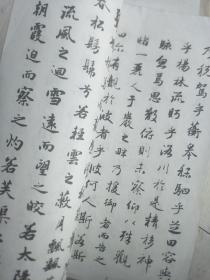 税駕乎蘅皋秣駟乎芝田容與
乎楊林流眄乎洛川於是精移神
駭忽焉思散俯則未察仰以殊觀
睹一麗人于巖之畔乃援御者而告之
覿於彼者乎彼何人斯
春松髣髴兮若輕雲之蔽月飄飄
流風之迴雪遠而望之皎若太陽
朝霞迫而察之灼若芙渠